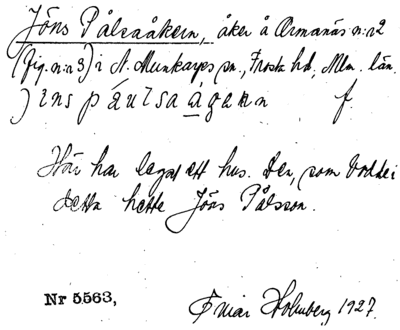 Jöns Pålsaåkern, åker å Ormanäs n:r 2
(fig. n:r 3) i N. Munkarps sn., Frosta hd, Mlm. län.
jins påulsaågern f
Här har legat ett hus. Den, som bodde i
detta hette Jöns Pålsson.
Nr 5563, Einar Holmberg 1927.